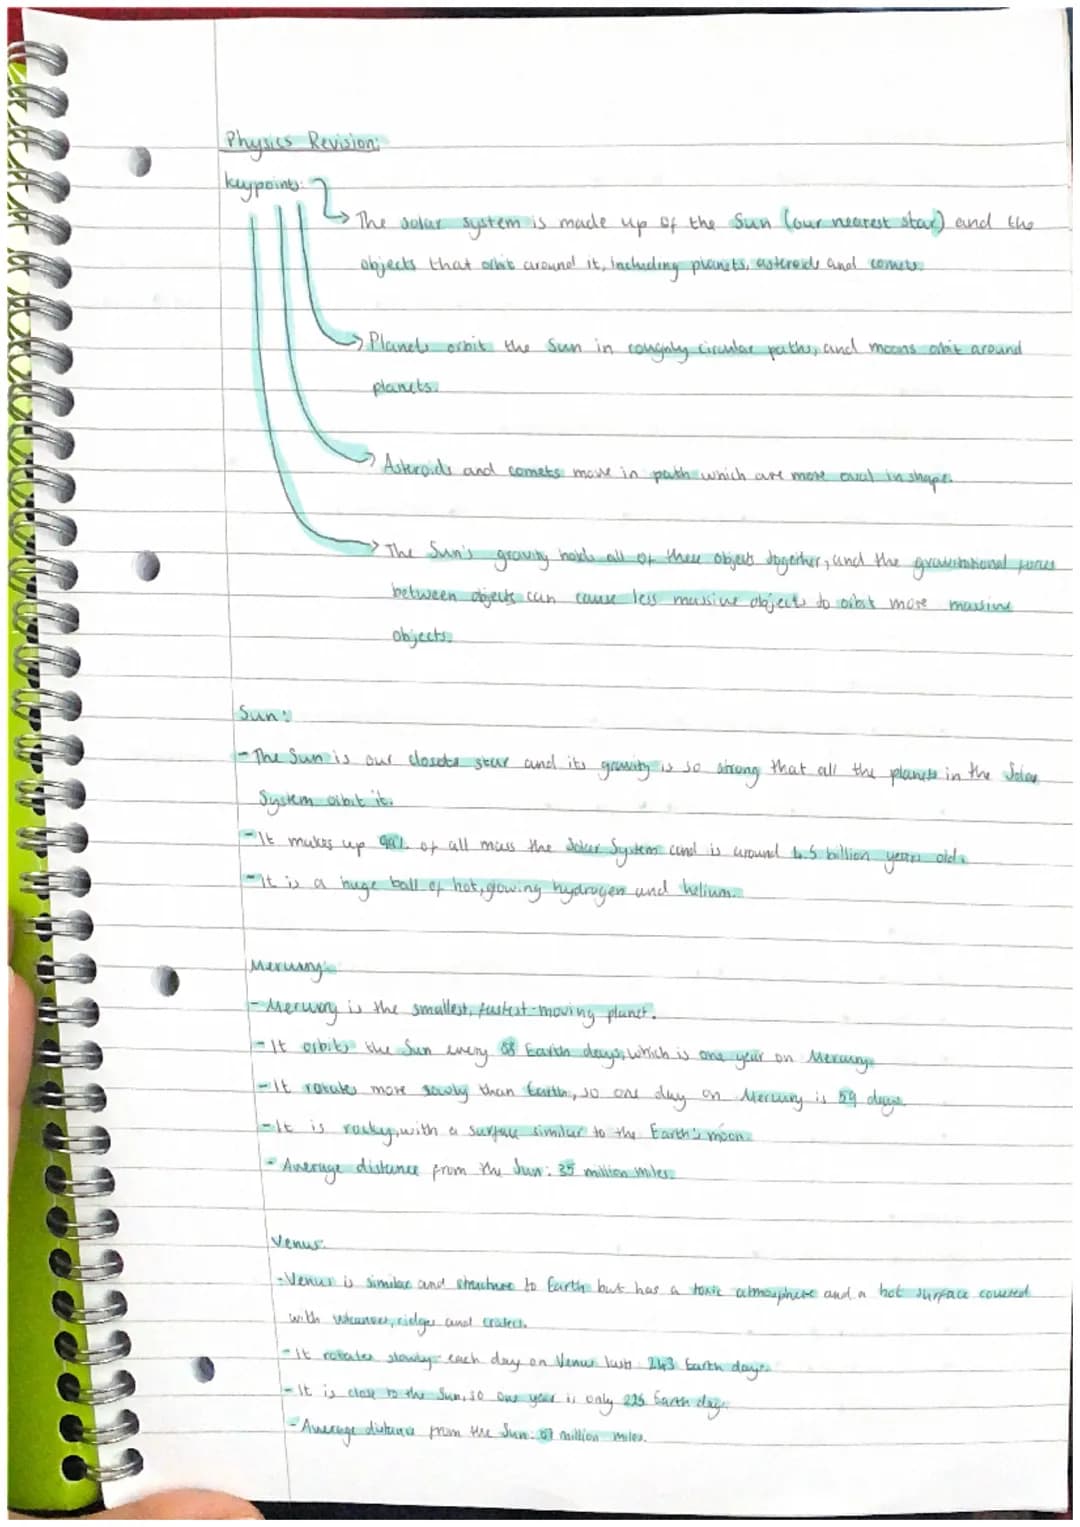 Physics Revision:
Keypoints:
The solar system is made up of the Sun (our nearest star) and the
objects that orbit around it, including planets, asteroids and comets.
Planets orbit the Sun in roughly circular paths, and moons orbit around
planets.
Asteroids and comets move in path which are more oval in shape.
The Sun's gravity holds all of these objects together, and the gravitational forces
between objects can cause less massive objects to orbit more massive
objects.
Sun:
- The Sun is our closets star and its gravity is so strong that all the planets in the Solar
System orbit it.
- It makes up 99% of all mass the Solar System and is around 4.5 billion years old.
- It is a huge ball of hot, glowing hydrogen and helium.
Mercury:
- Mercury is the smallest, fastest-moving planet.
- It orbits the Sun every 88 Earth days, which is one year on Mercury.
- It rotates more slowly than Earth, so one day on Mercury is 59 days.
- It is rocky, with a surface similar to the Earth's moon.
- Average distance from the Sun: 35 million miles.
Venus:
- Venus is similar and structure to Earth but has a toxic atmosphere and a hot surface covered
with volcanoes, ridges and craters.
- It rotates slowly - each day on Venus lasts 243 Earth days.
- It is close to the Sun, so one year is only 225 Earth days.
- Average distance from the Sun: 67 million miles.